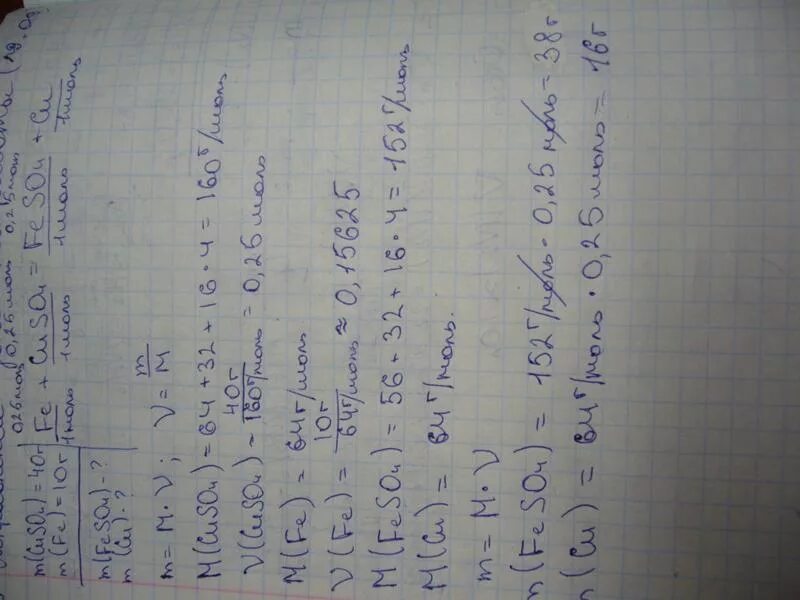 0,25моль 0,25моль 0,25моль
m(CuSO₄) = 40г
m(Fe) = 10г
m(FeSO₄) - ?
m(Cu) - ?
Fe + CuSO₄ = FeSO₄ + Cu
1моль 1моль 1моль 1моль
m = M · ν; ν = m/M
M(CuSO₄) = 64 + 32 + 16 · 4 = 160г/моль
ν(CuSO₄) = 40г/160г/моль = 0,25 моль
M(Fe) = 64г/моль
ν(Fe) = 10г/64г/моль ≈ 0,15625
M(FeSO₄) = 56 + 32 + 16 · 4 = 152г/моль
M(Cu) = 64г/моль.
m = M · ν
m(FeSO₄) = 152г/моль · 0,25 моль = 38г
m(Cu) = 64г/моль · 0,25 моль = 16г